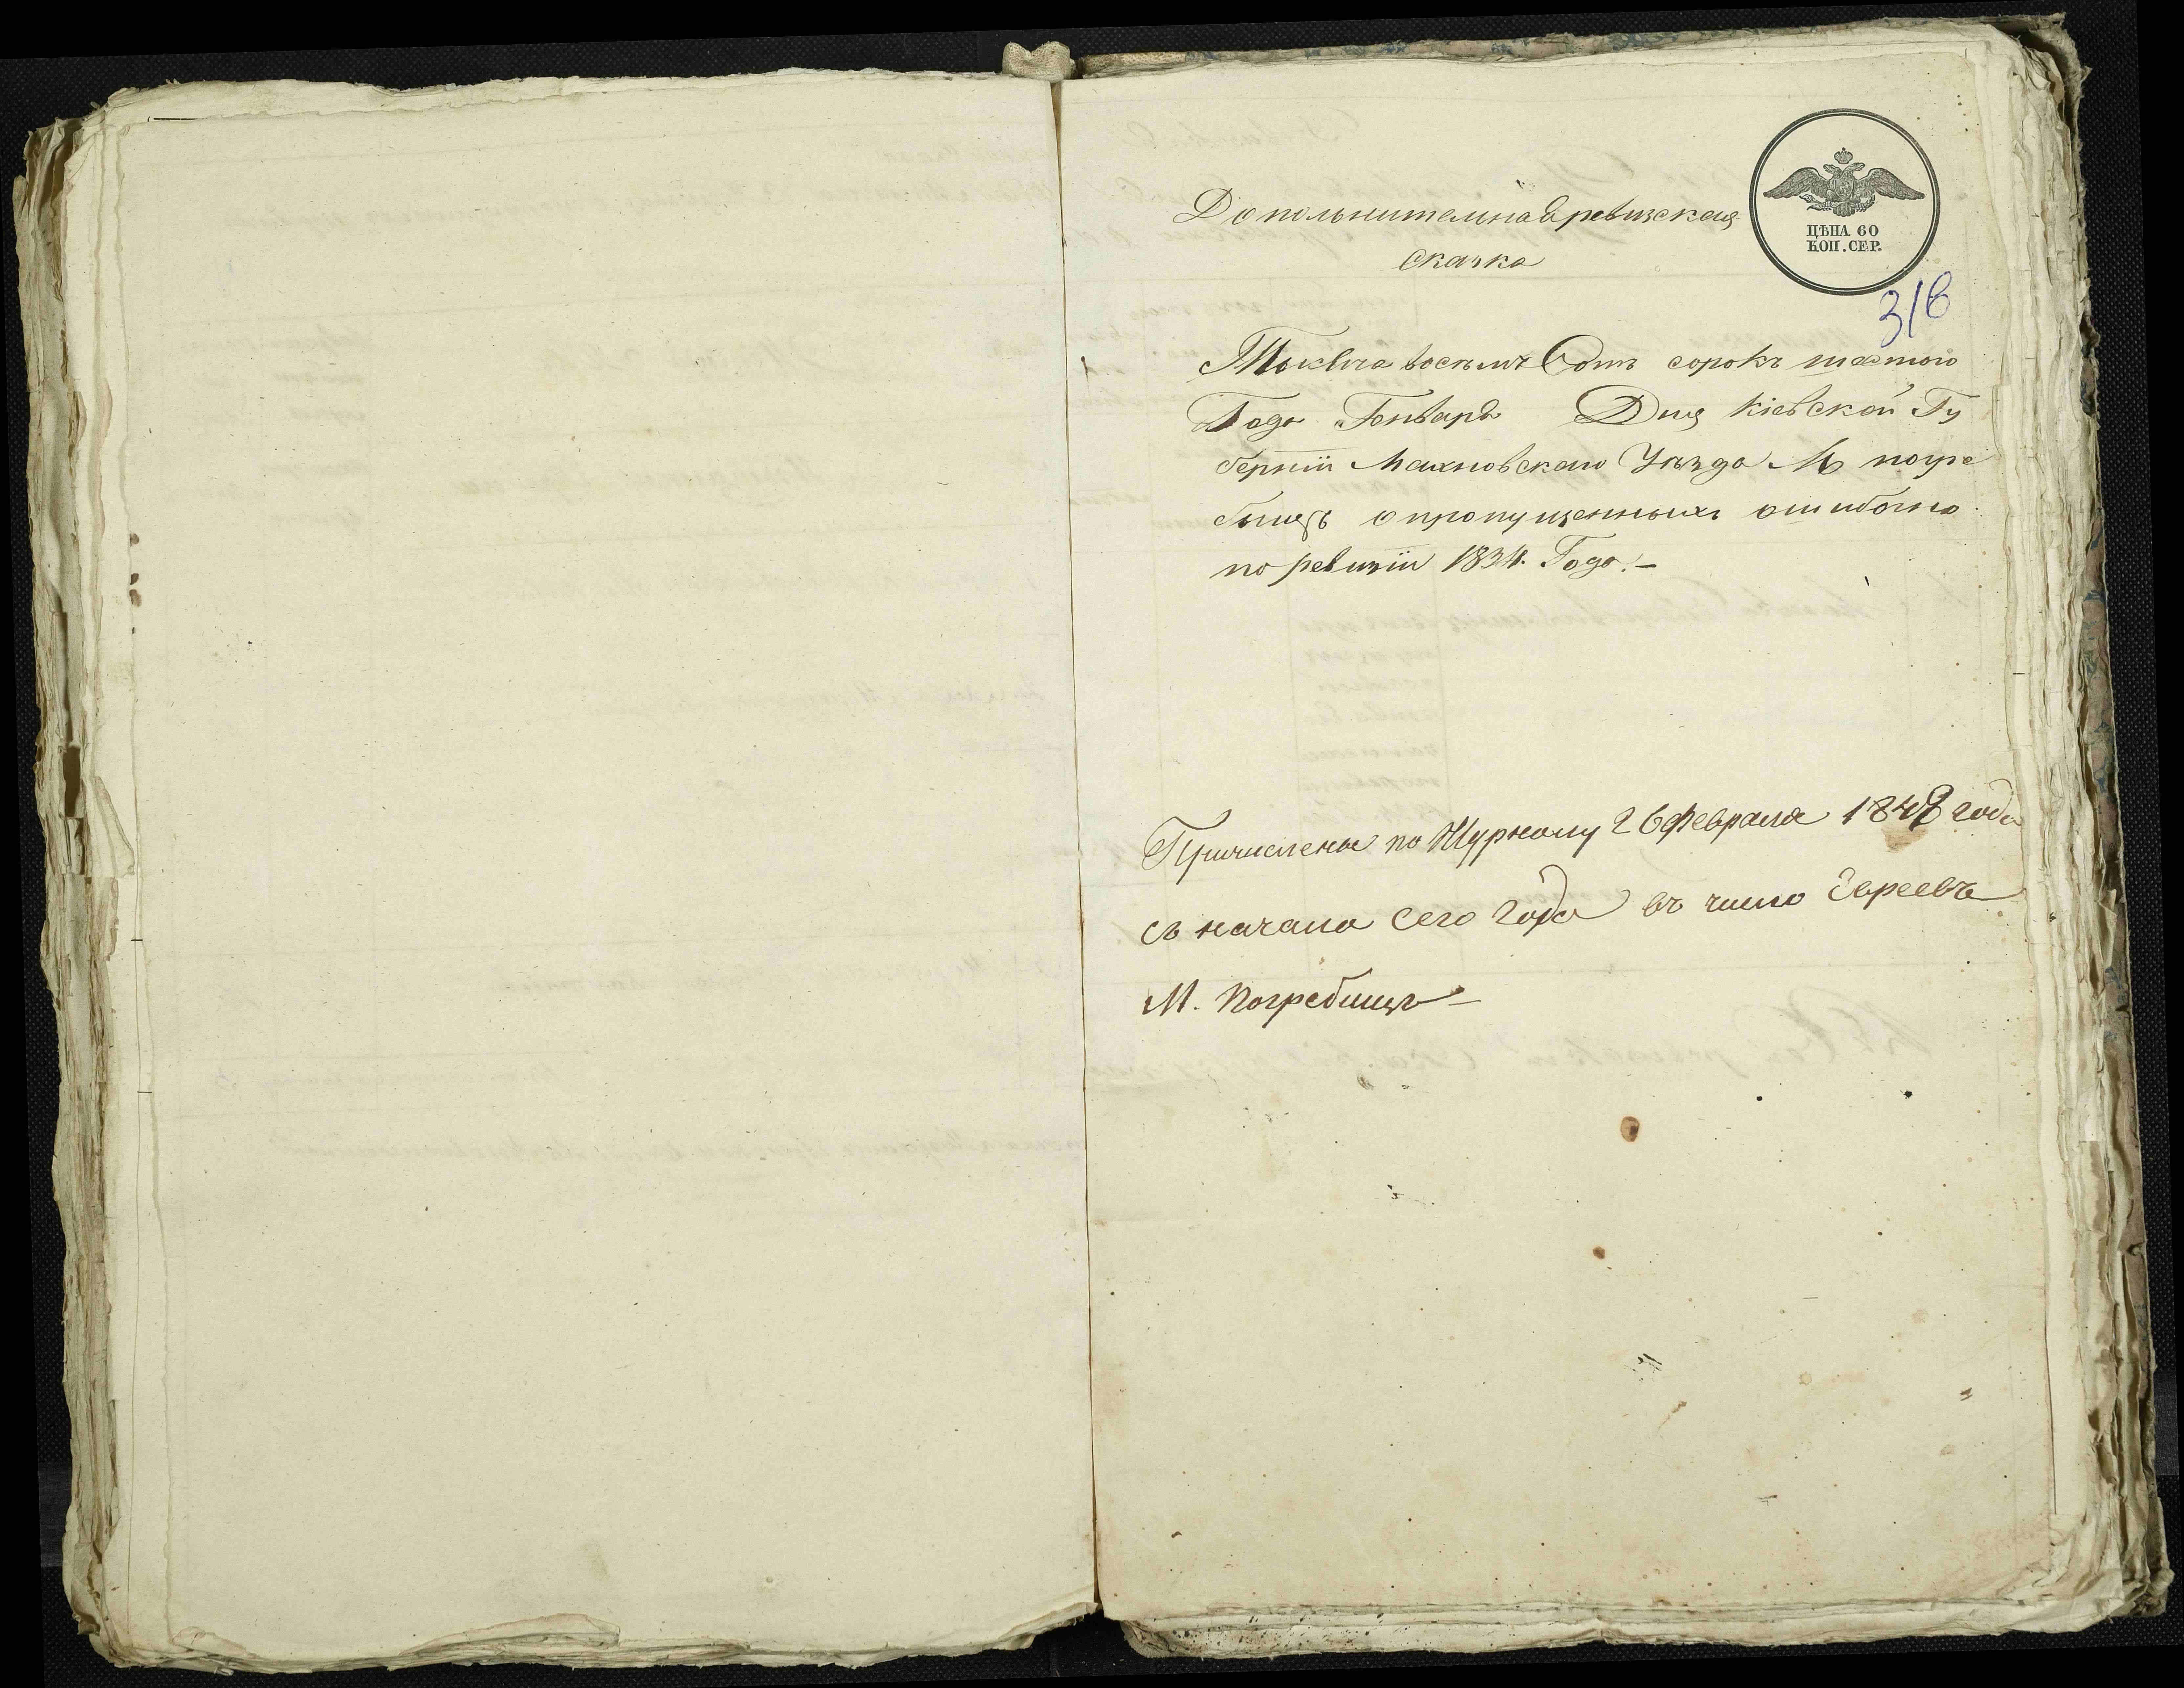 Дополнительная ревизская
сказка
ЦѢНА 60
КОП. СЕР.
316
Тысеча восемь Сотъ сорокъ шестого
Года Генваря Дня Кіевской Гу
берніи Махновскаго Уѣзда М погре
бищъ о пропущенныхъ ошибочно
по ревизіи 1834. Года.—
Причислены по Журналу 26 февраля 1848 года
съ начала сего года въ число Евреевъ
М. Погребищъ—